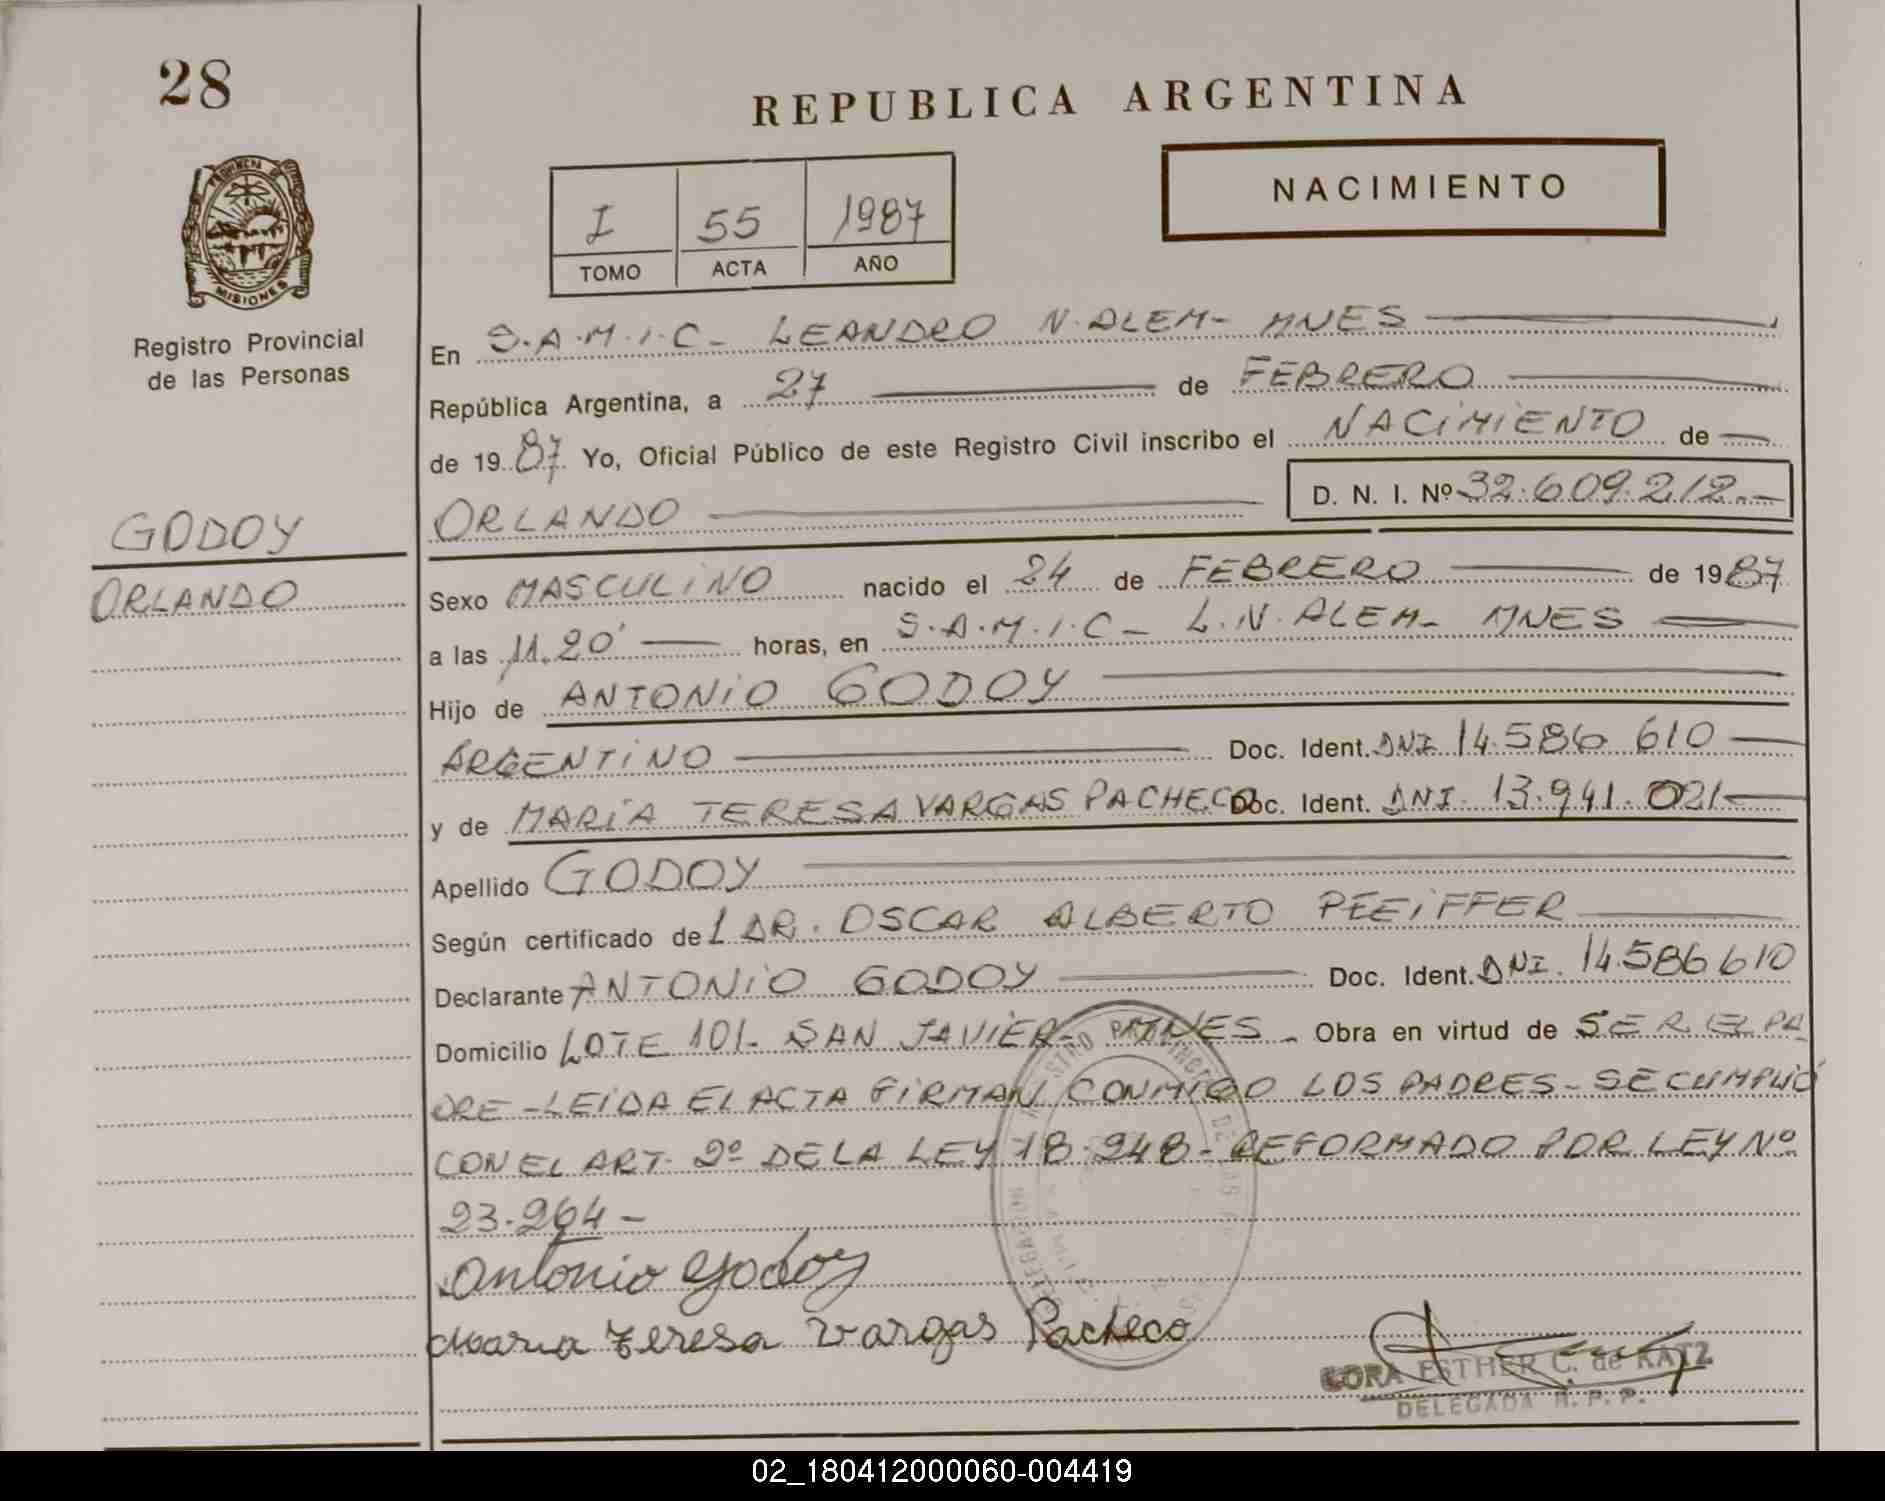 28
REPUBLICA ARGENTINA
PROVINCIA DE
MISIONES
Registro Provincial
de las Personas
I 55 1987
TOMO ACTA AÑO
NACIMIENTO
En S.A.M.I.C - LEANDRO N. ALEM - MNES
República Argentina, a 27 de FEBRERO
de 1987 Yo, Oficial Público de este Registro Civil inscribo el NACIMIENTO de
ORLANDO D. N. I. Nº 32.609.212.-
GODOY
ORLANDO
Sexo MASCULINO nacido el 24 de FEBRERO de 1987
a las 11.20' horas, en S.A.M.I.C - L.N. ALEM - MNES
Hijo de ANTONIO GODOY
ARGENTINO Doc. Ident. DNI 14.586 610
y de MARIA TERESA VARGAS PACHECO Doc. Ident. DNI. 13.941.021
Apellido GODOY
Según certificado del DR. OSCAR ALBERTO PFEIFFER
Declarante ANTONIO GODOY Doc. Ident. DNI. 14.586610
Domicilio LOTE 101 - SAN JAVIER - MNES - Obra en virtud de SER EL PA
DRE - LEIDA EL ACTA FIRMAN CONMIGO LOS PADRES - SE CUMPLIÓ
CON EL ART. 2º DE LA LEY 18.248 - REFORMADO POR LEY Nº
23.264 -
Antonio Godoy
Maria Teresa Vargas Pacheco
CORA ESTHER C. de KATZ
DELEGADA R. P. P.
02_180412000060-004419